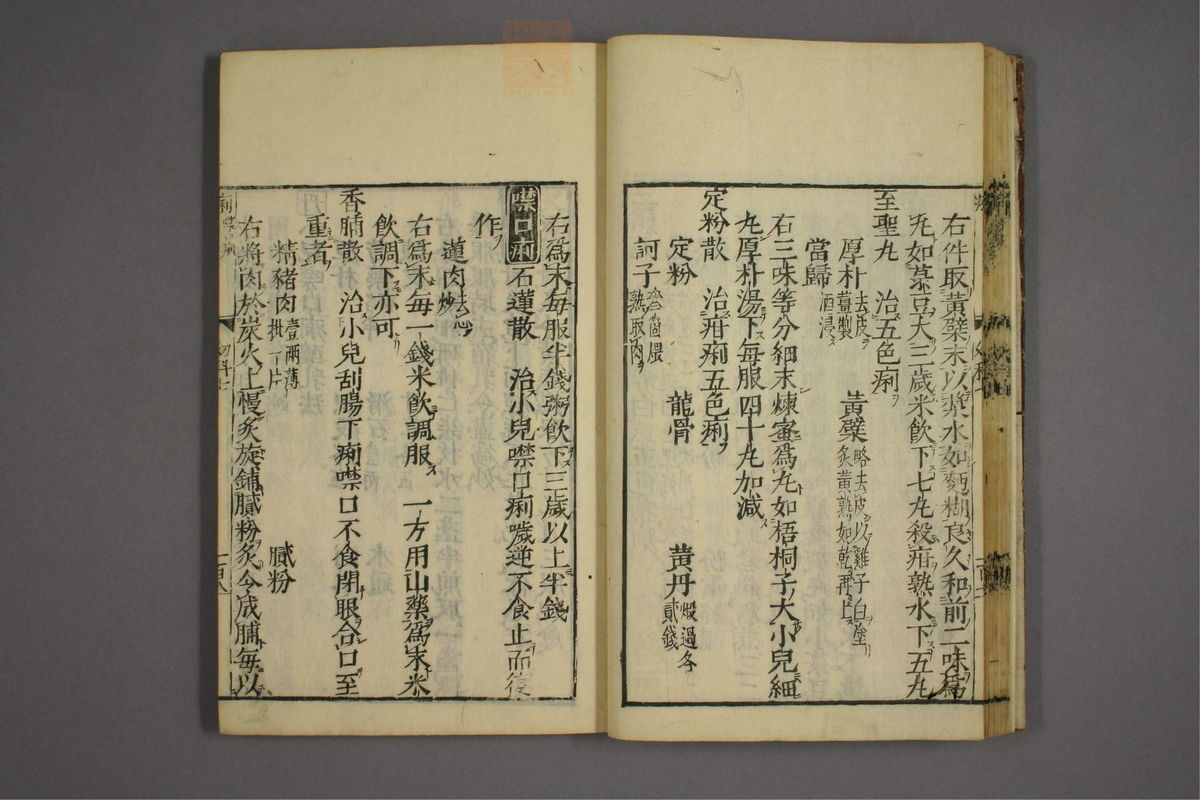 右件取黃蘗末以漿水如麪糊良久和前二味為
丸如菉豆大三歲米飲下七丸殺疳熟水下五丸
至聖丸　治五色痢
厚朴去皮薑製　黃蘗略去皮以雞子白塗炙黃熟如乾再上
當歸酒浸
右三味等分細末煉蜜爲丸如梧桐子大小兒細
丸厚朴湯下每服四十丸加減
定粉散　治疳痢五色痢
定粉　龍骨　黃丹煅過各貳錢
訶子叁箇煨熟取肉
右爲末每服半錢粥飲下三歲以上半錢
噤口痢　石蓮散　治小兒噤口痢噦逆不食止而復
作
蓮肉去心炒
右爲末每一錢米飲調服　一方用山藥爲末米
飲調下亦可
香脯散　治小兒刮腸下痢噤口不食閉眼合口至
重者
精豬肉壹兩薄批一片　膩粉
右將肉於炭火上慢炙旋鋪膩粉炙令成脯每以
痢 噤口痢